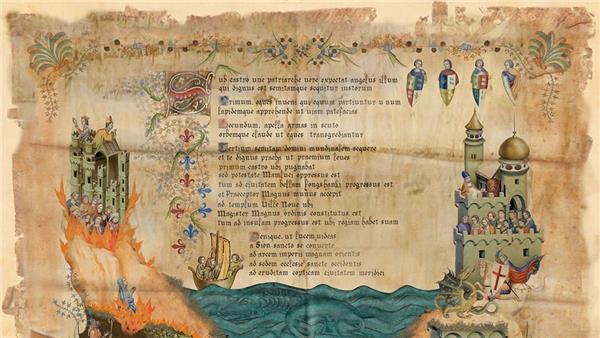 Sub castro une patriarche vere expectat angelus illum
qui dignus est semitamque sequitur iustorum
Primum, eques inveni qui equum partiuntur unum
lapidemque apprehende ut viam patefacias
Secundum, apella armas in scuto
orbemque claude ut eques transgrediantur
Tertium semitam domini mundinalem sequere
et te dignus praeba ut praemium feues
primum castro ubi pugnabat
sed potestate Mamluci oppressus est
tum ad civitatem bellam longshanki progressus est
et Praeceptor Magnus munus accepit
ad templum Ville Noue ubi
Magister Magnus ordinis constitutus est
tum ad insulam progressus est ubi regiam habet suam
Denique, ut lucem uideas
a Sion sancto se conuerte
ad arcem imperii magnam orientis
ad sedem ecclesie sancte occidentis
ad eruditam copticam ciuitatem meridiei